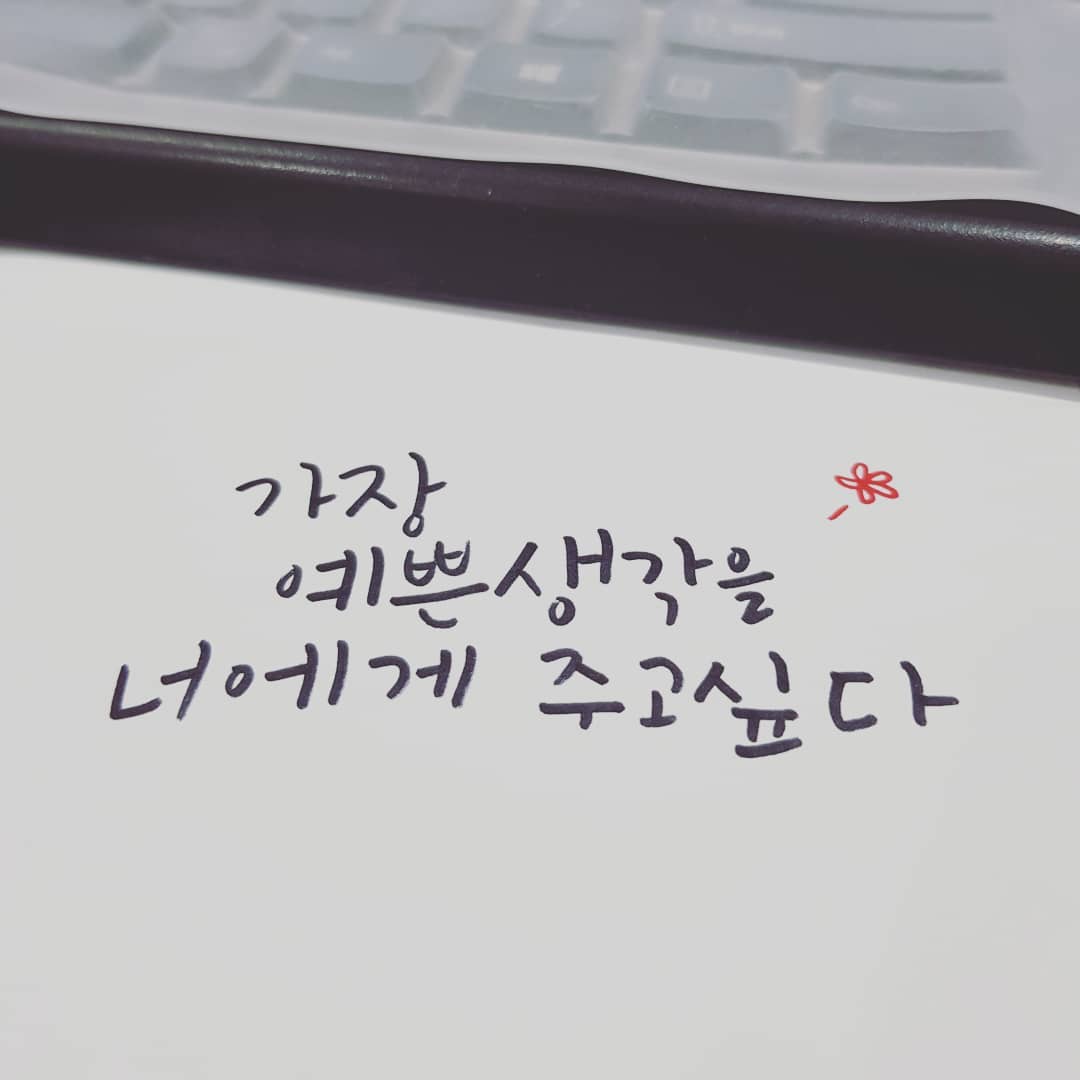 가장
예쁜생각을
너에게 주고싶다